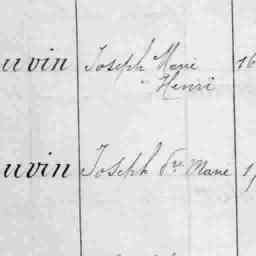 uvin Joseph Marie 16
Henri
uvin Joseph Marie 1